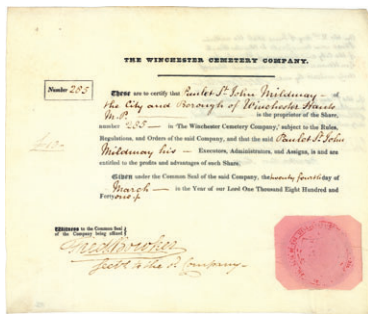 THE WINCHESTER CEMETERY COMPANY.
Number 285
These are to certify that Paulet St. John Mildmay of
the City and Borough of Winchester Hants
M.P. is the proprietor of the Share,
number 285 in 'The Winchester Cemetery Company,' subject to the Rules,
Regulations, and Orders of the said Company, and that the said Paulet St. John
Mildmay his Executors, Administrators, and Assigns, is and are
entitled to the profits and advantages of such Share.
Given under the Common Seal of the said Company, the twenty fourth day of
March in the Year of our Lord One Thousand Eight Hundred and
Forty one
Witness to the Common Seal
of the Company being affixed
Bowker
to the sd. Company